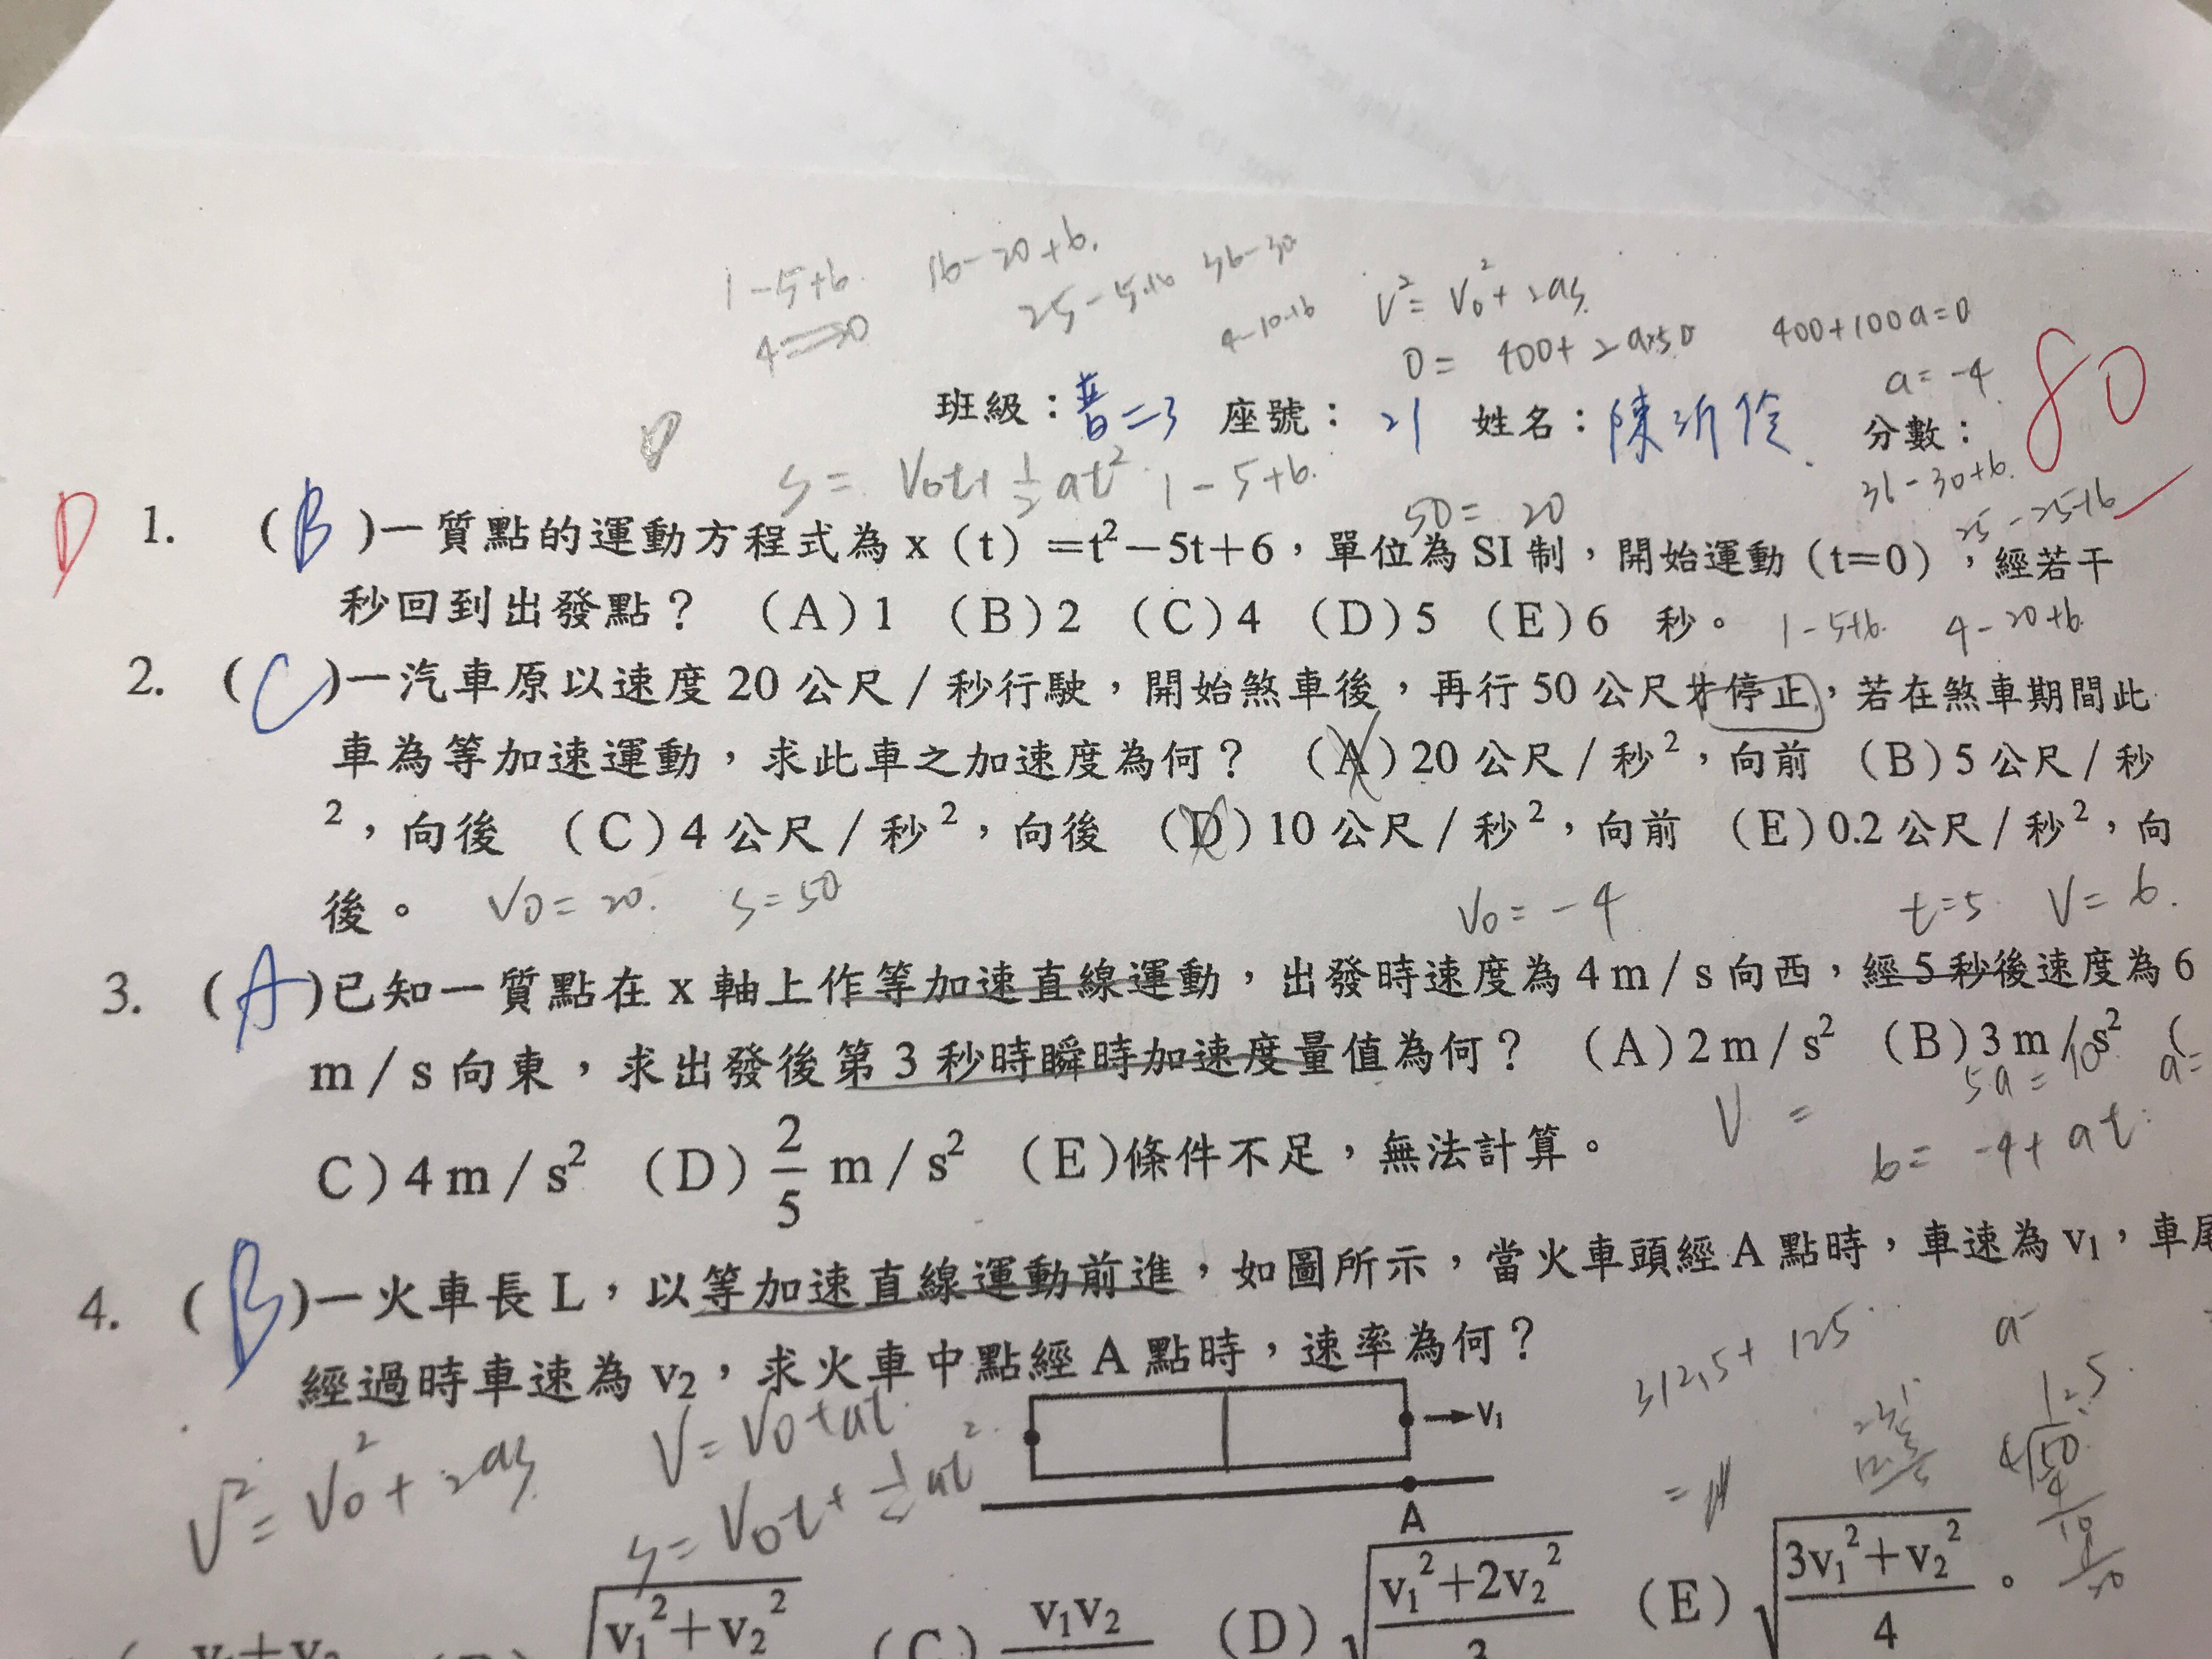 1-5+6. 16-20+6. 36-30
4⇒0 25-5+6 4-10+6 V²=V₀²+2as.
0=400+2a×50 400+100a=0
a=-4
班級：普二3 座號：21 姓名：陳沂伶 分數：80
S=V₀t+½at² 1-5+6. 36-30+6.
50=20 25-25+6
D 1. (B)一質點的運動方程式為x（t）=t²-5t+6，單位為SI制，開始運動（t=0），經若干
秒回到出發點？ （A）1 （B）2 （C）4 （D）5 （E）6 秒。 1-5+6. 4-20+6.
2. (C)一汽車原以速度20公尺／秒行駛，開始煞車後，再行50公尺才停止，若在煞車期間此
車為等加速運動，求此車之加速度為何？ （A）20公尺／秒²，向前 （B）5公尺／秒
²，向後 （C）4公尺／秒²，向後 （D）10公尺／秒²，向前 （E）0.2公尺／秒²，向
後。 V₀=20. S=50 V₀=-4 t=5 V=6.
3. (A)已知一質點在x軸上作等加速直線運動，出發時速度為4m/s向西，經5秒後速度為6
m/s向東，求出發後第3秒時瞬時加速度量值為何？ （A）2m/s² （B）3m/s² （
5a=10 a=
C）4m/s² （D）2/5 m/s² （E）條件不足，無法計算。 V=
6=-4+at
4. (B)一火車長L，以等加速直線運動前進，如圖所示，當火車頭經A點時，車速為v₁，車尾
經過時車速為v₂，求火車中點經A點時，速率為何？ 312.5+125
V²=V₀²+2as V=V₀+at. v₁
S=V₀t+½at² 12.5
4 50
A
v₁+v₂ √(v₁²+v₂²) （C） v₁v₂ （D）√((v₁²+2v₂²)/3) （E）√((3v₁²+v₂²)/4)。